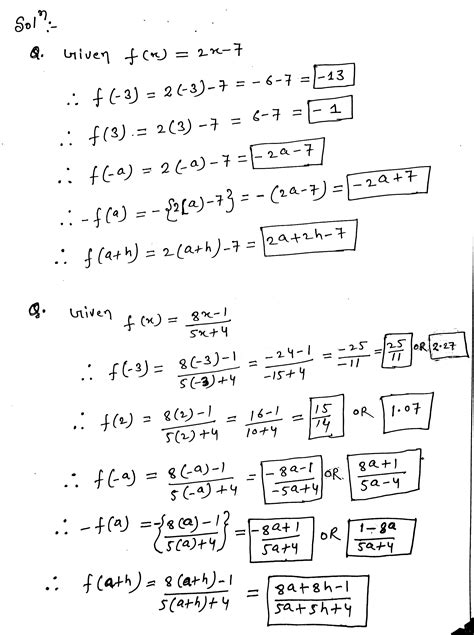 Solⁿ:-
Q. Given f(x) = 2x-7
∴ f(-3) = 2(-3)-7 = -6-7 = -13
∴ f(3) = 2(3)-7 = 6-7 = -1
∴ f(-a) = 2(-a)-7 = -2a-7
∴ -f(a) = -{2(a)-7} = -(2a-7) = -2a+7
∴ f(a+h) = 2(a+h)-7 = 2a+2h-7
Q. Given f(x) = (8x-1)/(5x+4)
∴ f(-3) = (8(-3)-1)/(5(-3)+4) = (-24-1)/(-15+4) = -25/-11 = 25/11 OR 2.27
∴ f(2) = (8(2)-1)/(5(2)+4) = (16-1)/(10+4) = 15/14 OR 1.07
∴ f(-a) = (8(-a)-1)/(5(-a)+4) = (-8a-1)/(-5a+4) OR (8a+1)/(5a-4)
∴ -f(a) = -{(8(a)-1)/(5(a)+4)} = (-8a+1)/(5a+4) OR (1-8a)/(5a+4)
∴ f(a+h) = (8(a+h)-1)/(5(a+h)+4) = (8a+8h-1)/(5a+5h+4)